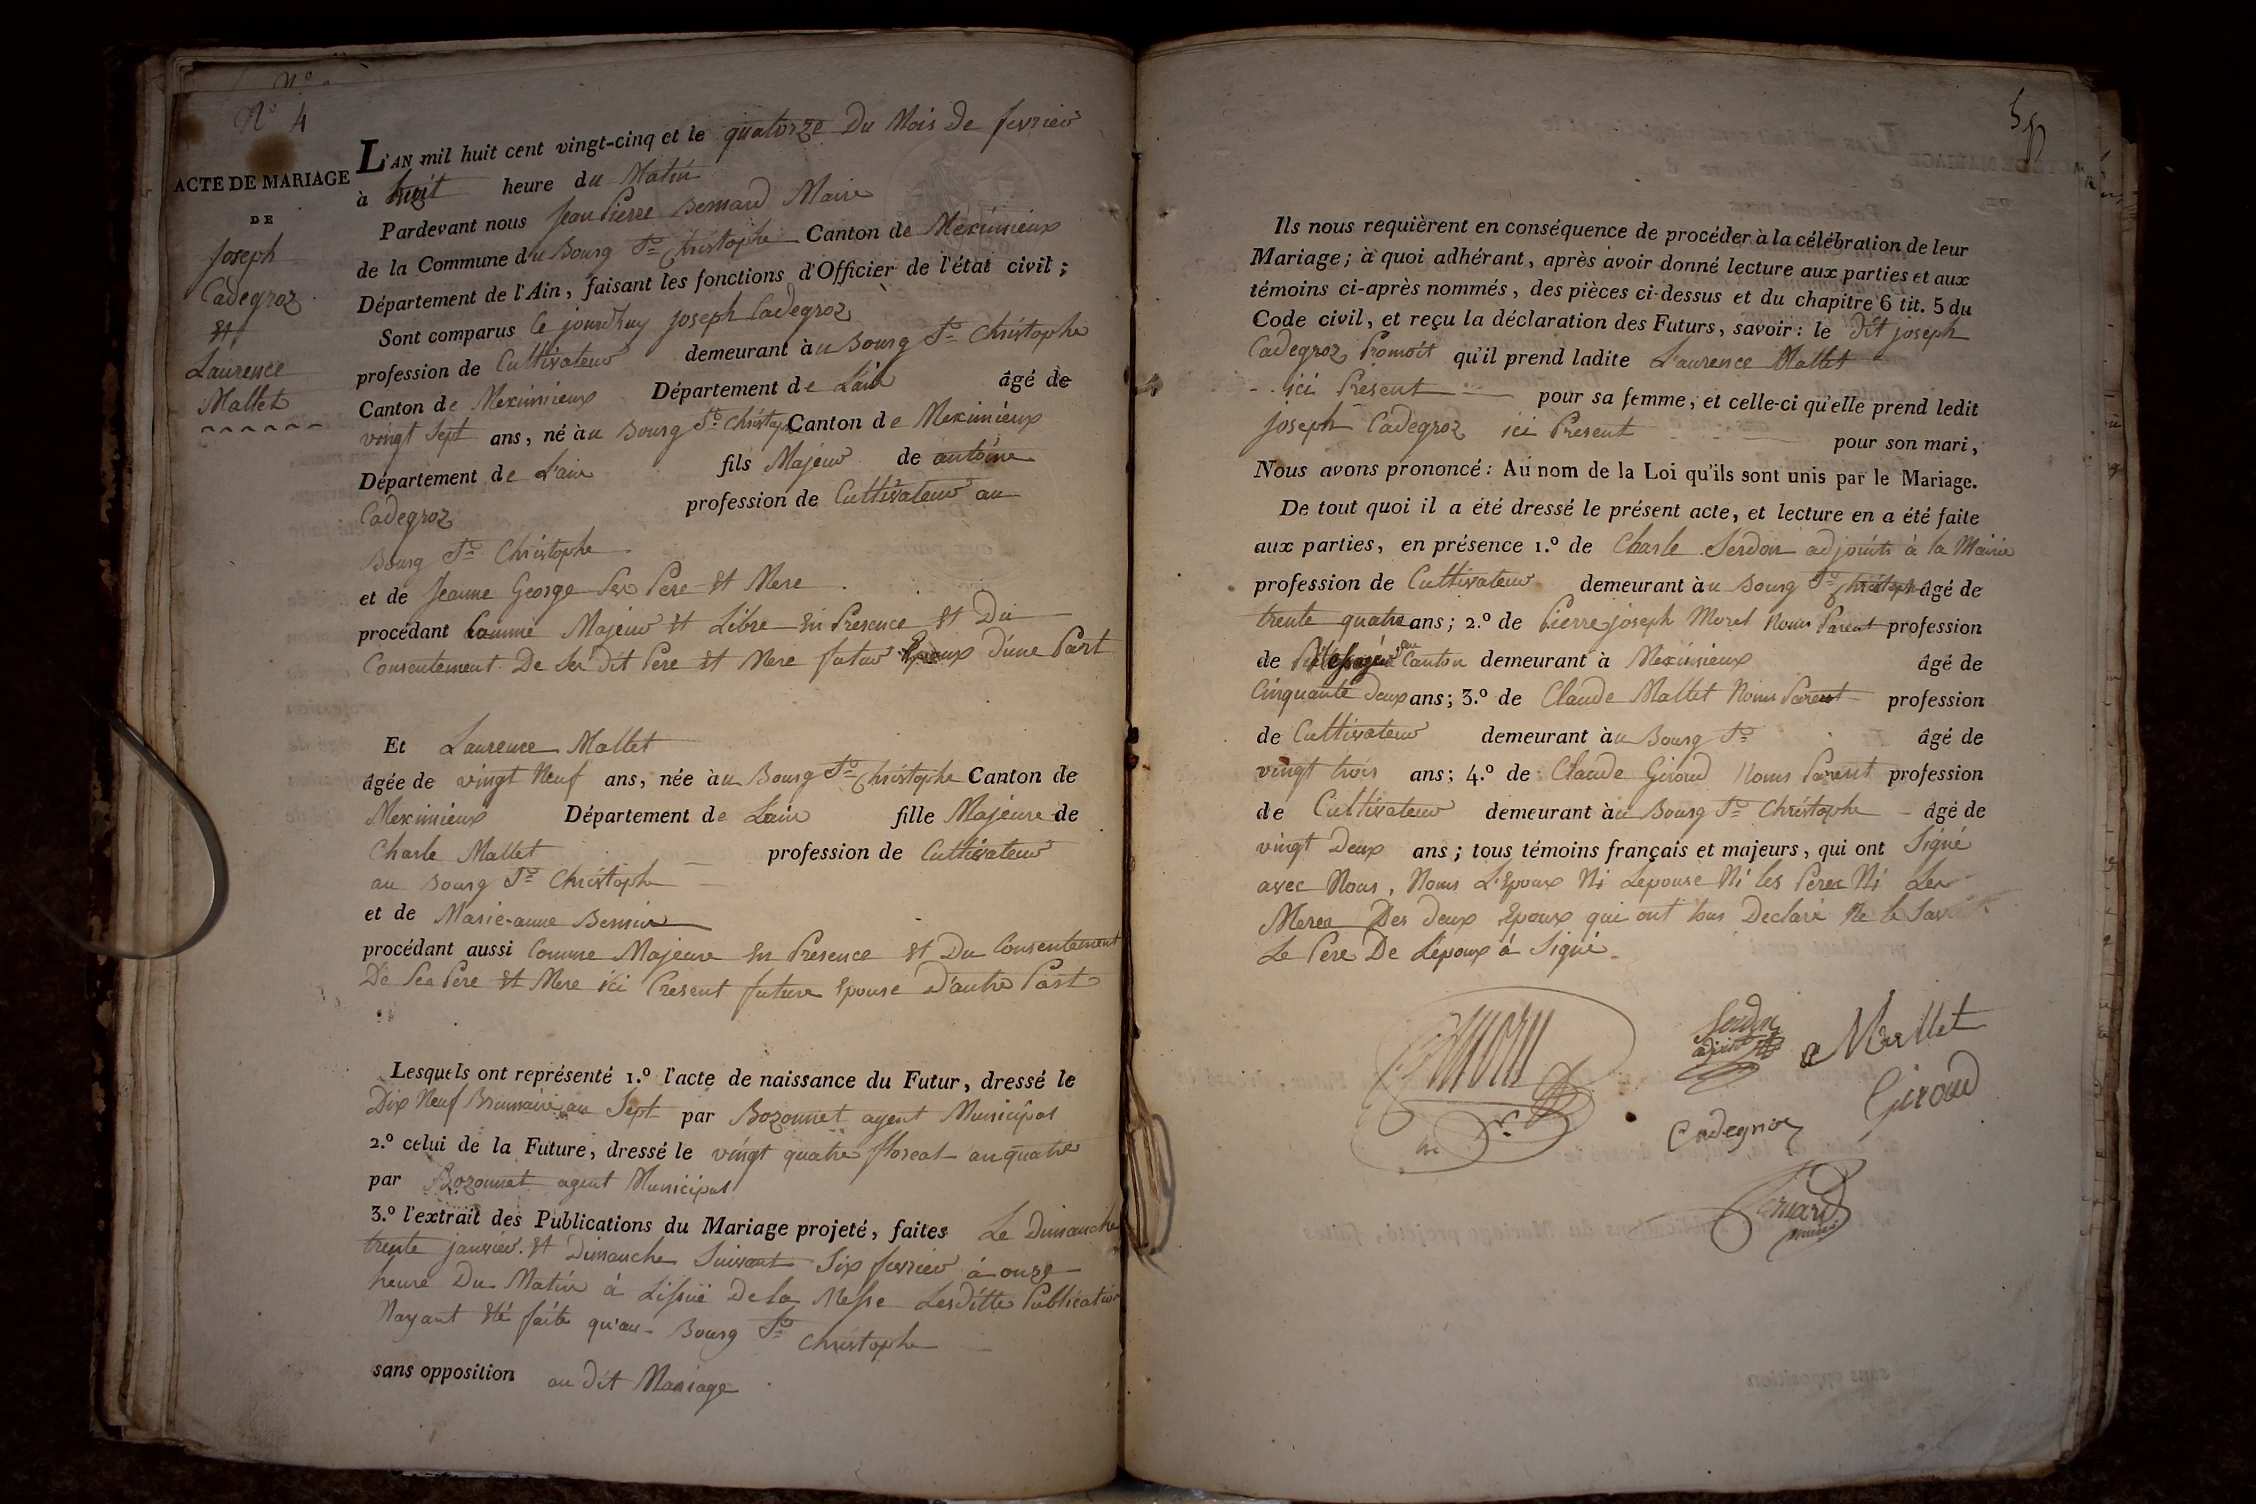 N.° 4
ACTE DE MARIAGE
DE
Joseph
Cadegroz
Et
Laurence
Mallet
L'AN mil huit cent vingt-cinq et le quatorze Du Mois De fevrier
à huit heure du Matin
Pardevant nous Jean Pierre Bernard Maire
de la Commune du Bourg St Christophe Canton de Meximieux
Département de l'Ain, faisant les fonctions d'Officier de l'état civil;
Sont comparus Ce jourdhuy joseph Cadegroz
profession de Cultivateur demeurant àu Bourg St Christophe
Canton de Meximieux Département de Lain âgé de
vingt Sept ans, né àu Bourg St Christop Canton de Meximieux
Département de L'ain fils Majeur de antoine
Cadegroz profession de Cultivateur au
Bourg St Christophe
et de Jeanne George Ses Pere Et Mere
procédant Comme Majeur Et Libre En Presence Et Du
Consentement De Ses dit Pere Et Mere futur Epoux D'une Part
Et Laurence Mallet
âgée de vingt Neuf ans, née àu Bourg St Christophe Canton de
Meximieux Département de Lain fille Majeure de
Charle Mallet profession de Cultivateur
au Bourg St Christophe
et de Marie-anne
procédant aussi Comme Majeure En Presence Et Du Consentement
De Ses Pere Et Mere ici Present future Epouse D'autre Part
Lesquels ont représenté 1.° l'acte de naissance du Futur, dressé le
Dix Neuf Brumaire an Sept par Bozonnet agent Municipal
2.° celui de la Future, dressé le vingt quatre floreal an quatre
par Bozonnet agent Municipal
3.° l'extrait des Publications du Mariage projeté, faites Le Dimanche
trente janvier Et Dimanche Suivant Six fevrier à onze
heure Du Matin à Lissüe De la Messe Lesditte Publication
Nayant Eté faite qu'au Bourg St Christophe
sans opposition au dit Mariage
Ils nous requièrent en conséquence de procéder à la célébration de leur
Mariage; à quoi adhérant, après avoir donné lecture aux parties et aux
témoins ci-après nommés, des pièces ci-dessus et du chapitre 6 tit. 5 du
Code civil, et reçu la déclaration des Futurs, savoir: le dit joseph
Cadegroz Promoit qu'il prend ladite Laurence Mallet
ici Present pour sa femme, et celle-ci qu'elle prend ledit
Joseph Cadegroz ici Present pour son mari,
Nous avons prononcé: Au nom de la Loi qu'ils sont unis par le Mariage.
De tout quoi il a été dressé le présent acte, et lecture en a été faite
aux parties, en présence 1.° de Charle Serdon adjoints à la Mairie
profession de Cultivateur demeurant àu Bourg St Christoph âgé de
trente quatre ans; 2.° de Pierre joseph Morel Nons Parent profession
de Canton demeurant à Meximieux âgé de
Cinquante deux ans; 3.° de Claude Mallet Nons Parent profession
de Cultivateur demeurant àu Bourg St âgé de
vingt trois ans; 4.° de Claude Giroud Nons Parent profession
de Cultivateur demeurant àu Bourg St Christophe âgé de
vingt Deux ans; tous témoins français et majeurs, qui ont Signé
avec Nous, Nons L'Epoux Ni Lepouse Ni les Peres Ni Les
Meres Des deux Epoux qui ont tous Declaré Ne le Savoir
Le Pere De Lepoux à Signé
Serdon
adjoint
Mallet
Giroud
Cadegroz
Bernard
maire